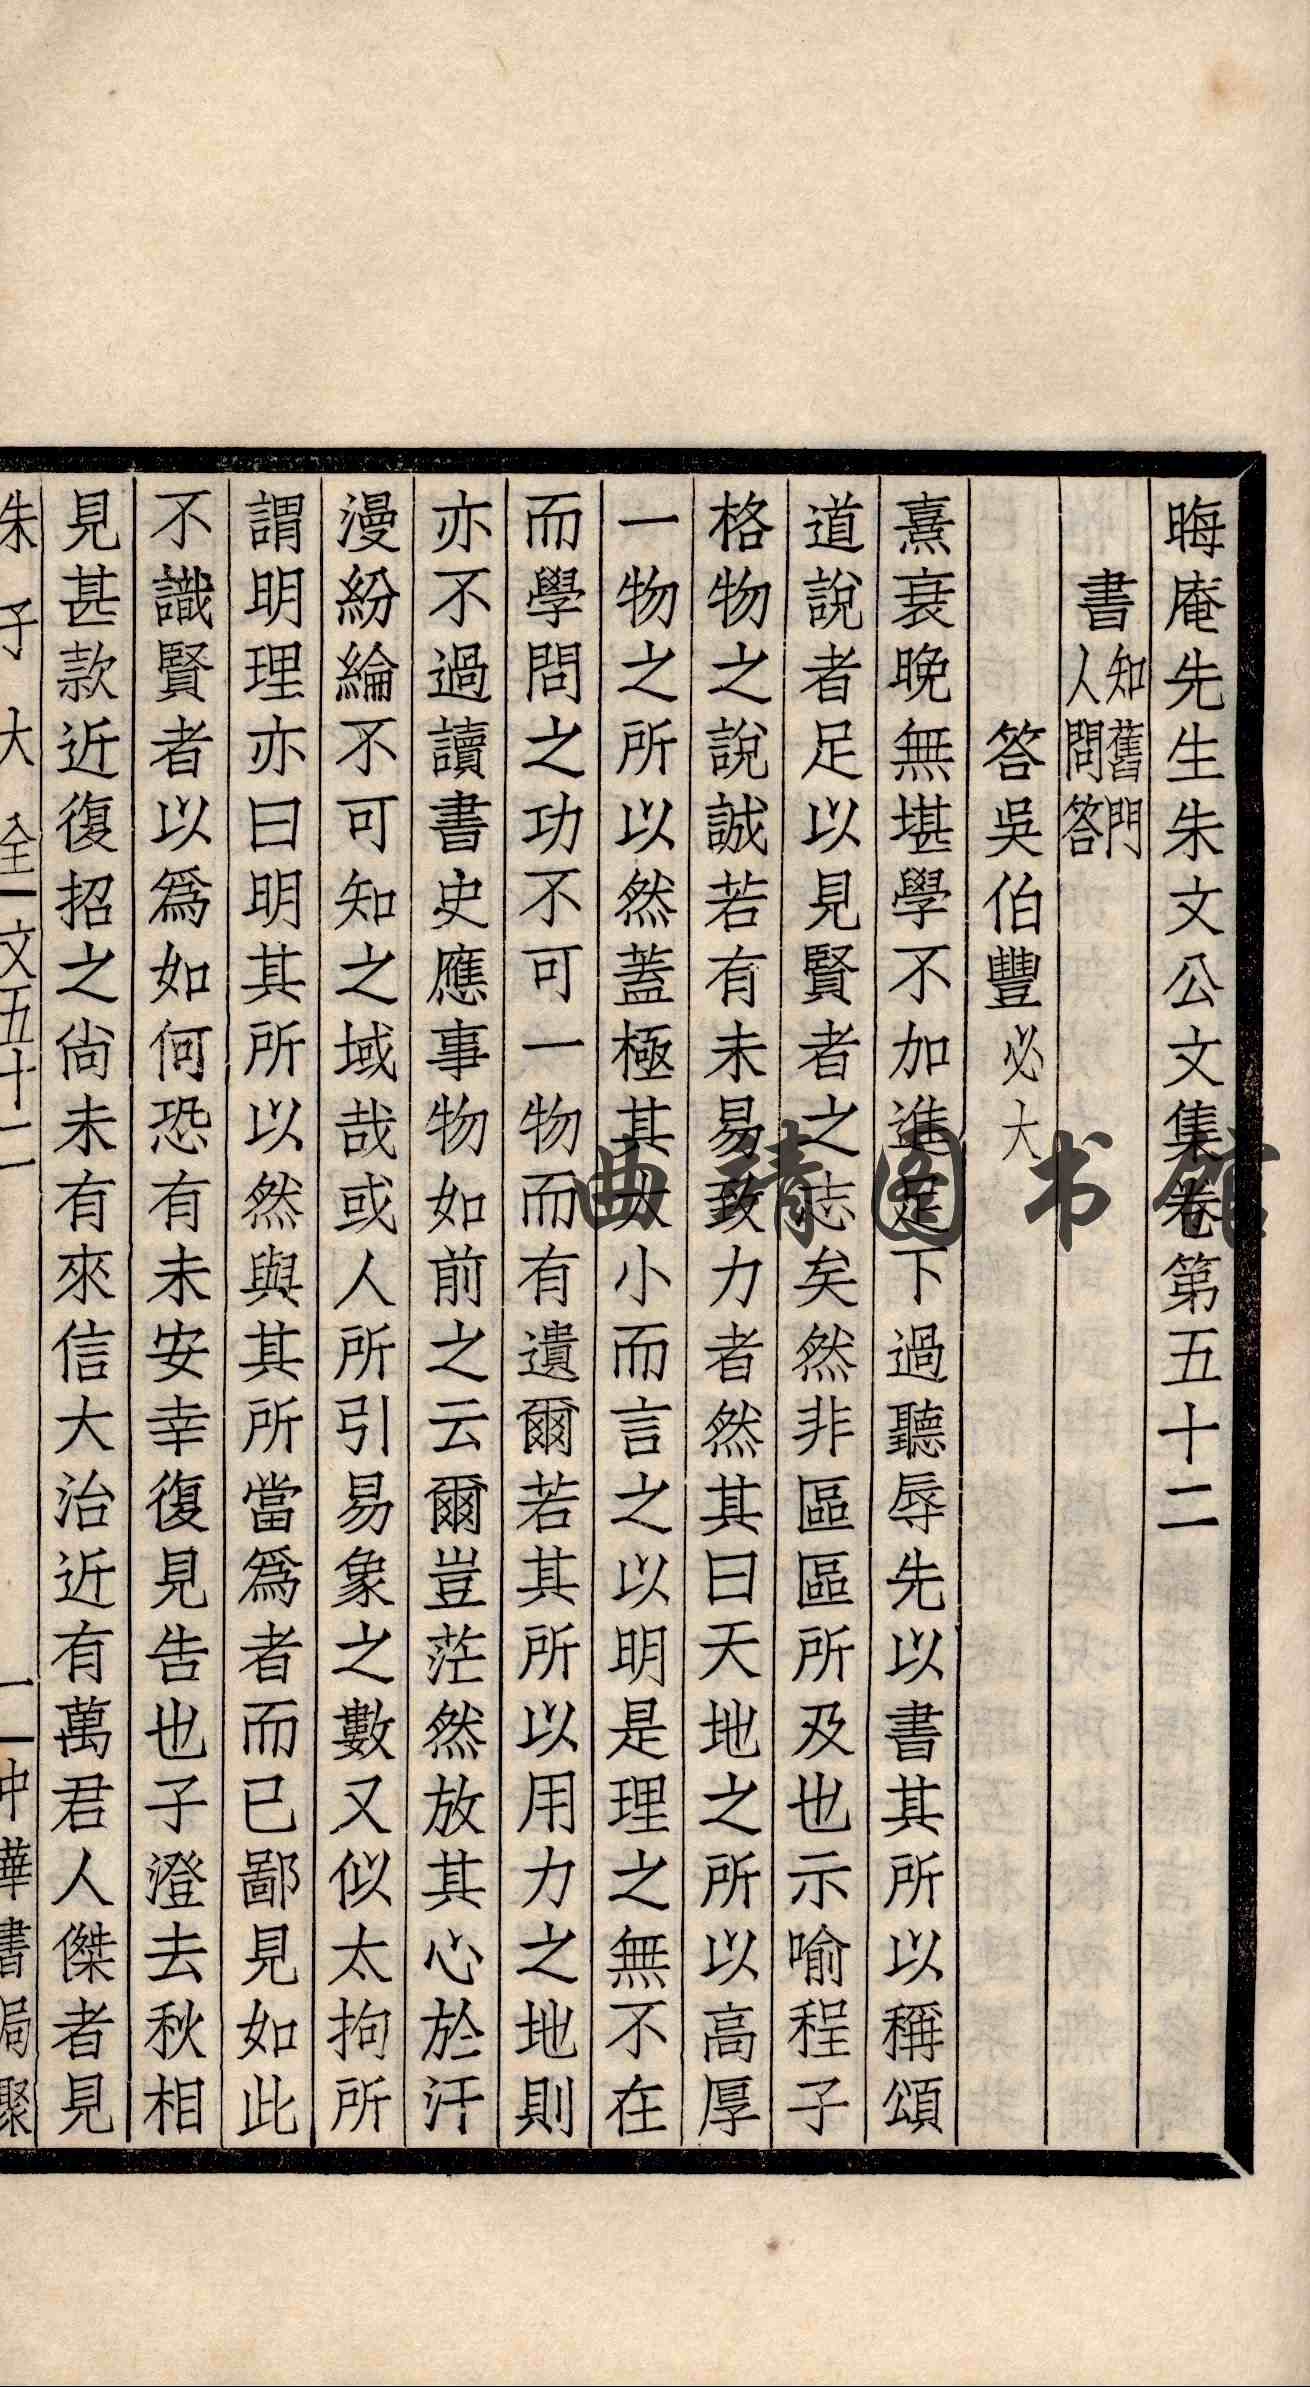 晦庵先生朱文公文集卷第五十二
書知舊門人問答
答吳伯豐必大
熹衰晚無堪學不加進足下過聽辱先以書其所以稱頌
道說者足以見賢者之志矣然非區區所及也示喻程子
格物之說誠若有未易致力者然其曰天地之所以高厚
一物之所以然蓋極其大小而言之以明是理之無不在
而學問之功不可一物而有遺爾若其所以用力之地則
亦不過讀書史應事物如前之云爾豈茫然放其心於汗
漫紛綸不可知之域哉或人所引易象之數又似太拘所
謂明理亦曰明其所以然與其所當爲者而已鄙見如此
不識賢者以爲如何恐有未安幸復見告也子澄去秋相
見甚款近復招之尙未有來信大治近有萬君人傑者見
朱子大全 文五十二 一 中華書局聚
曲靖图书馆